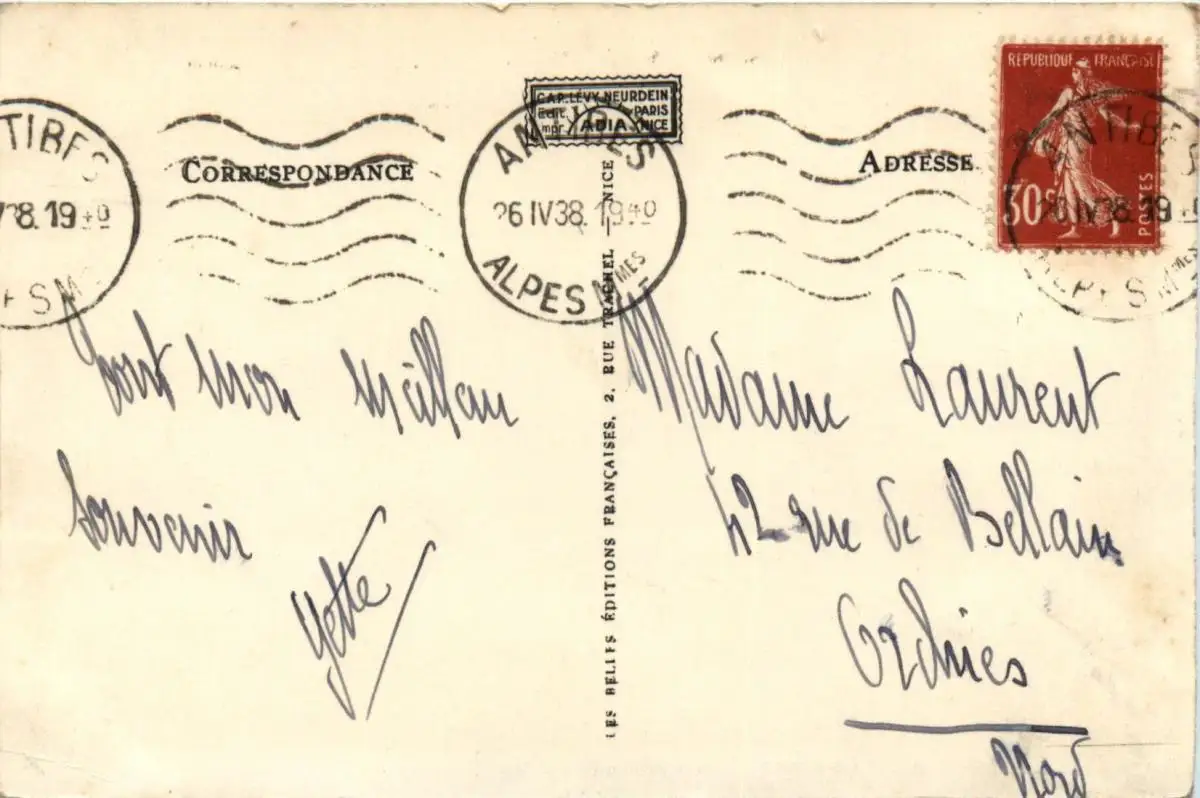 CAP. LÉVY-NEURDEIN
Edit. PARIS
Impr. ADIA NICE
CORRESPONDANCE
ADRESSE
RÉPUBLIQUE FRANÇAISE
30c
POSTES
TIBES
38.19 40
ES M
ANTIBES
26 IV 38. 19 40
ALPES MMES
ANTIBES
26 IV 38. 19
ALPES MMES
Tout mon meilleur
souvenir
Yette
LES BELLES ÉDITIONS FRANÇAISES, 2, RUE TRACHEL — NICE
Madame Laurent
42 rue de Bellain
Orchies
Nord